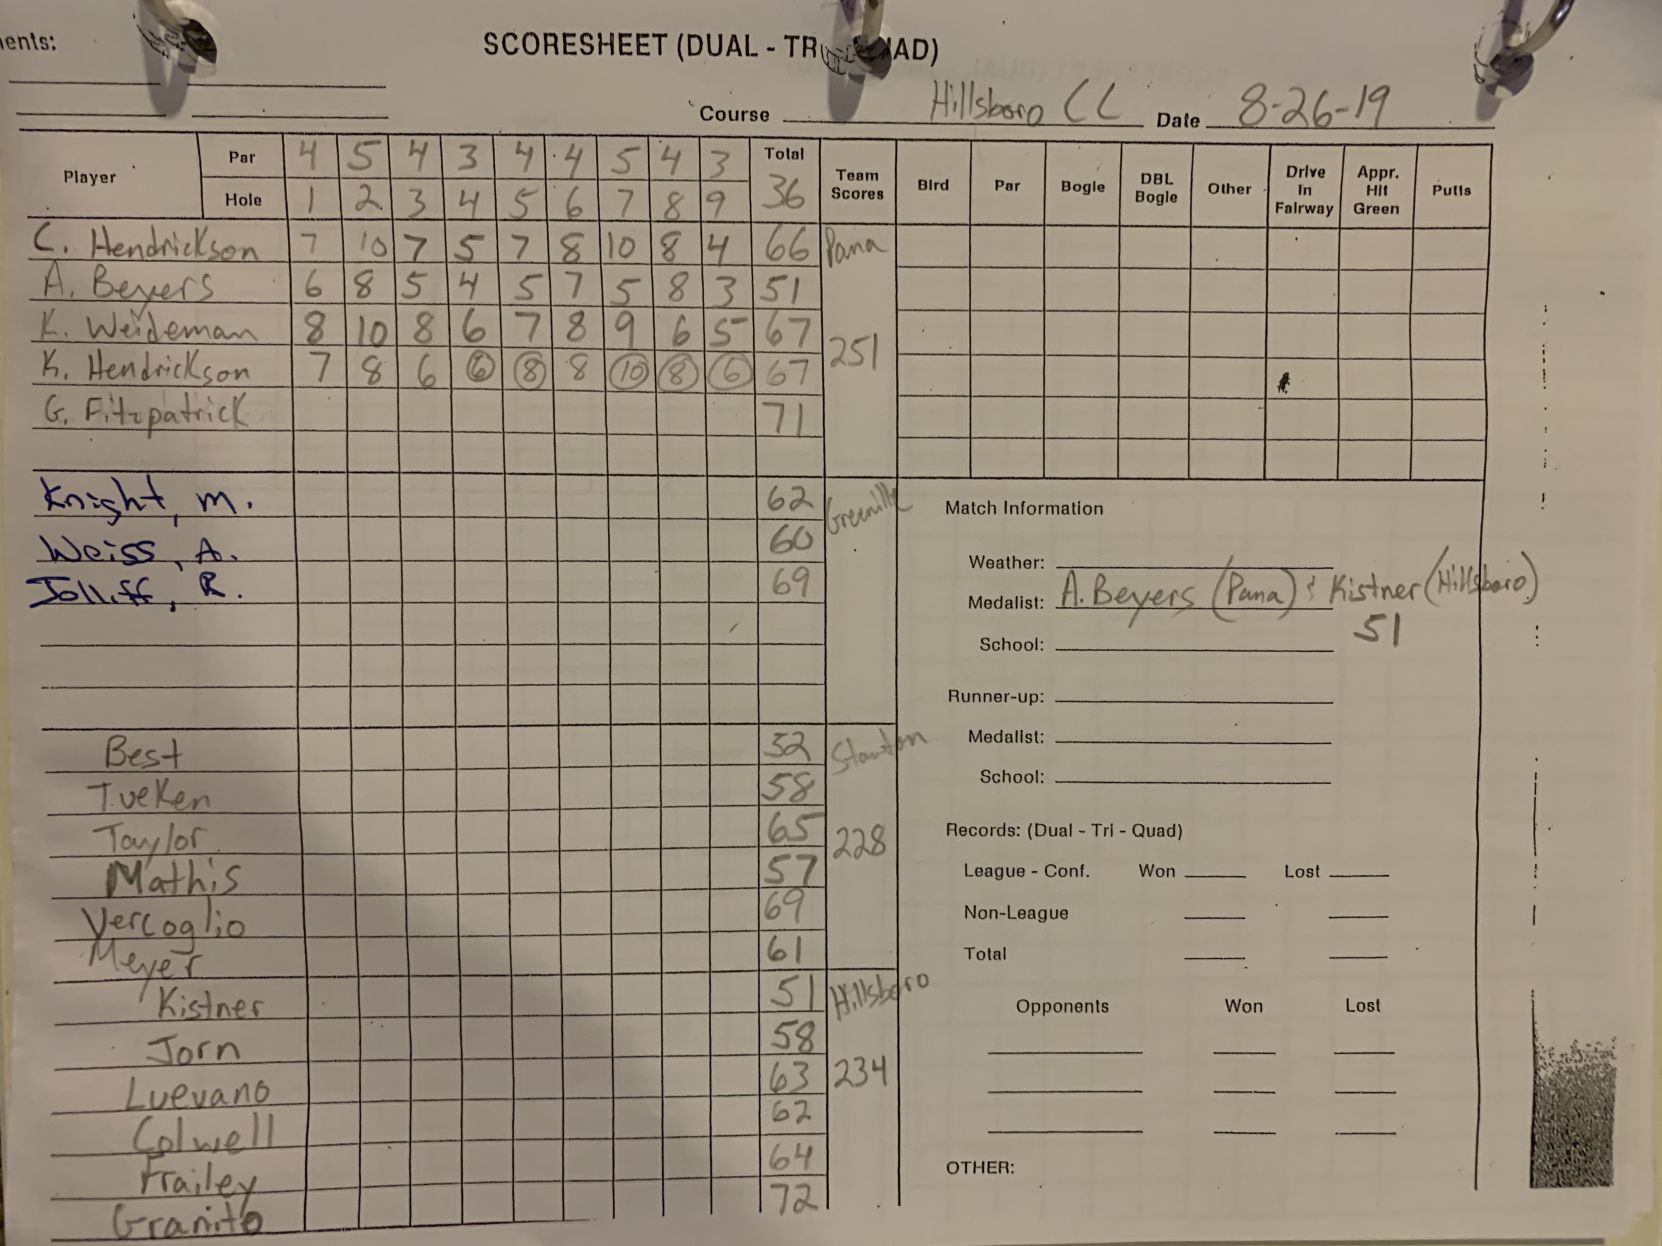 ents:
SCORESHEET (DUAL - TRI QUAD)
Course Hillsboro CC Date 8-26-19
Player Par 4 5 4 3 4 4 5 4 3 Total Team Scores Bird Par Bogie DBL Bogie Other Drive In Fairway Appr. Hit Green Putts
Hole 1 2 3 4 5 6 7 8 9 36
C. Hendrickson 7 10 7 5 7 8 10 8 4 66 Pana
A. Beyers 6 8 5 4 5 7 5 8 3 51
K. Weideman 8 10 8 6 7 8 9 6 5 67
251
K. Hendrickson 7 8 6 6 8 8 10 8 6 67
G. Fitzpatrick 71
Knight, M. 62 Greenville
Weiss, A. 60
Jolliff, R. 69
Best 52 Staunton
Tueken 58
Taylor 65
228
Mathis 57
Vercoglio 69
Meyer 61
Kistner 51 Hillsboro
Jorn 58
Luevano 63 234
Colwell 62
Frailey 64
Granito 72
Match Information
Weather:
Medalist: A. Beyers (Pana) & Kistner (Hillsboro)
51
School:
Runner-up:
Medalist:
School:
Records: (Dual - Tri - Quad)
League - Conf. Won Lost
Non-League
Total
Opponents Won Lost
OTHER: